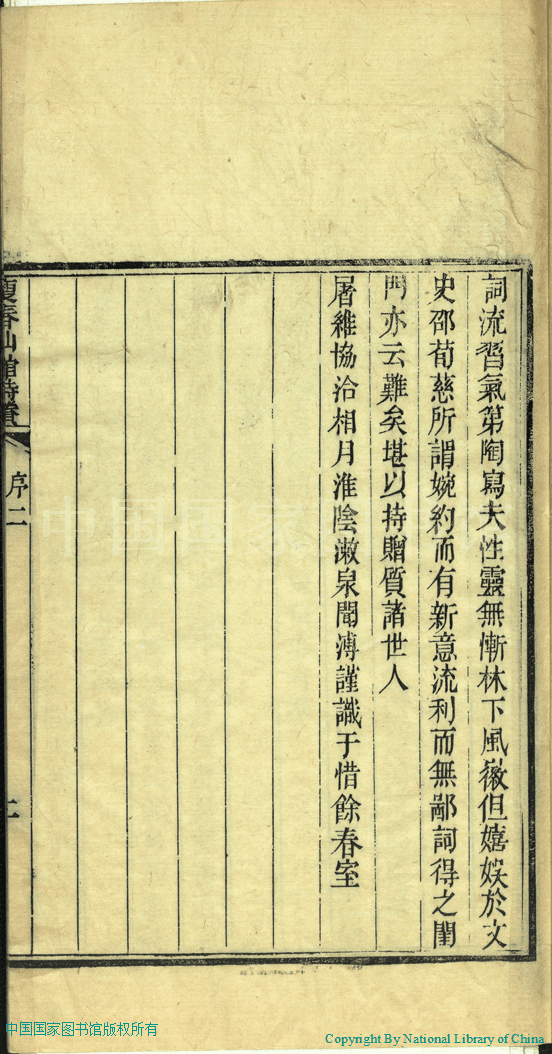 詞流習氣第陶寫夫性靈無慚林下風徽但嬉娛於文
史邵荀慈所謂婉約而有新意流利而無鄙詞得之閨
門亦云難矣堪以持贈質諸世人
屠維協洽相月淮陰漱泉聞溥謹識于惜餘春室
春仙館詩
序二
二
中国国家图书馆版权所有
Copyright By National Library of China